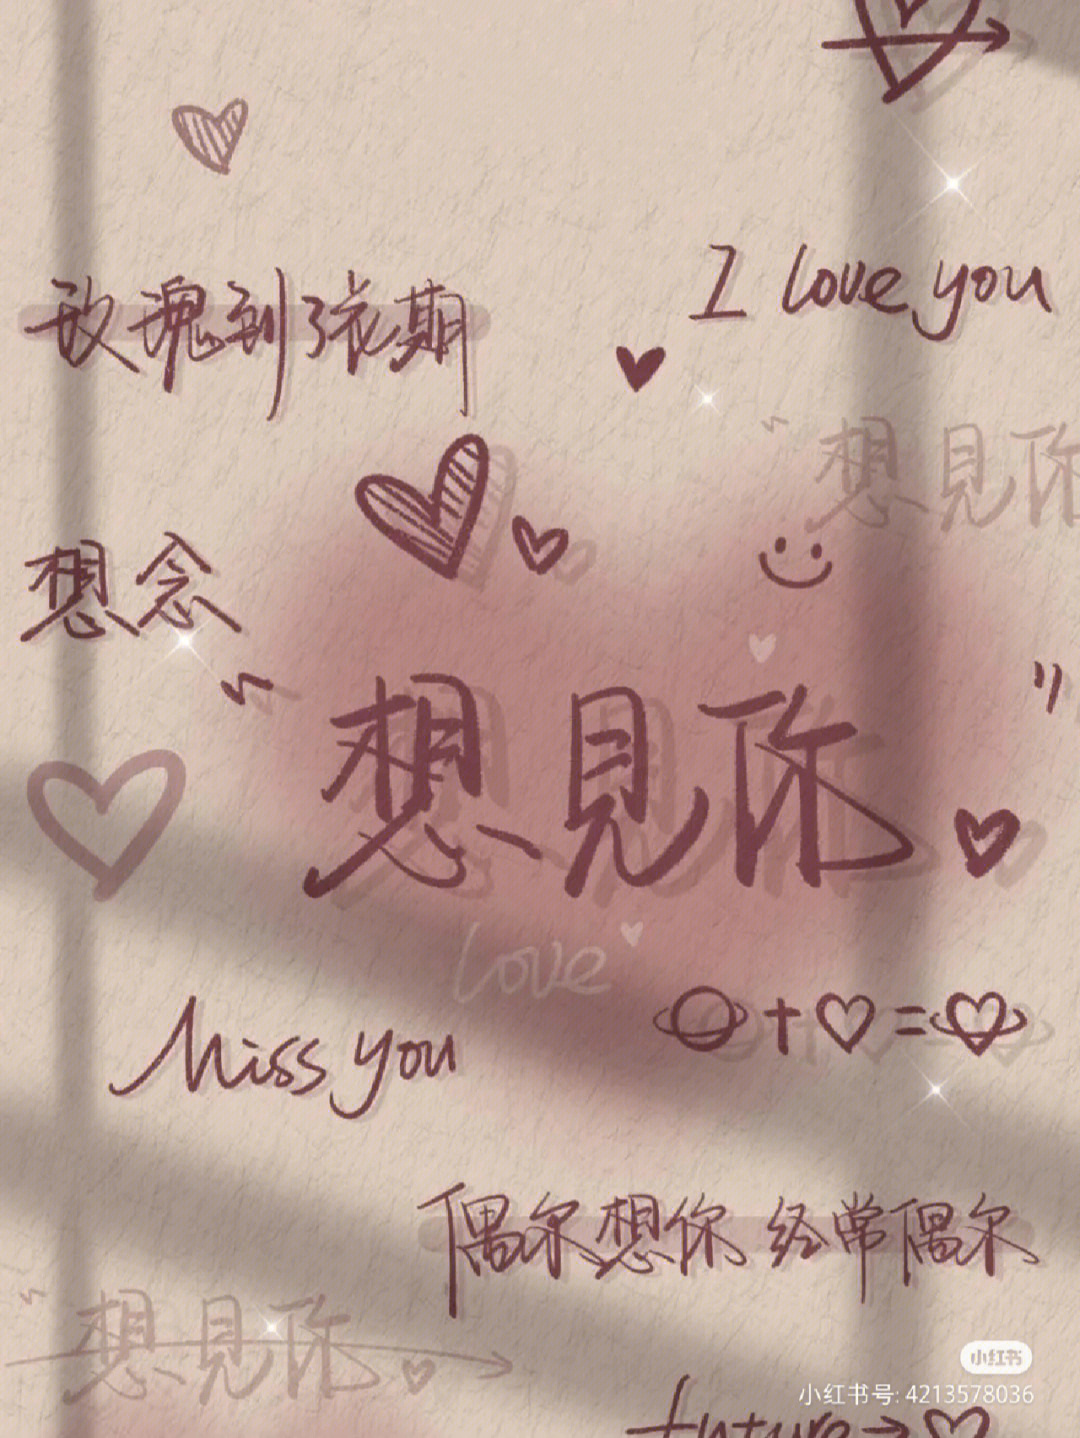 玫瑰到张期
I love you
"想见你
想念
"想见你"
love
Miss you
偶尔想你 经常偶尔
"想见你
小红书
小红书号: 4213578036
future